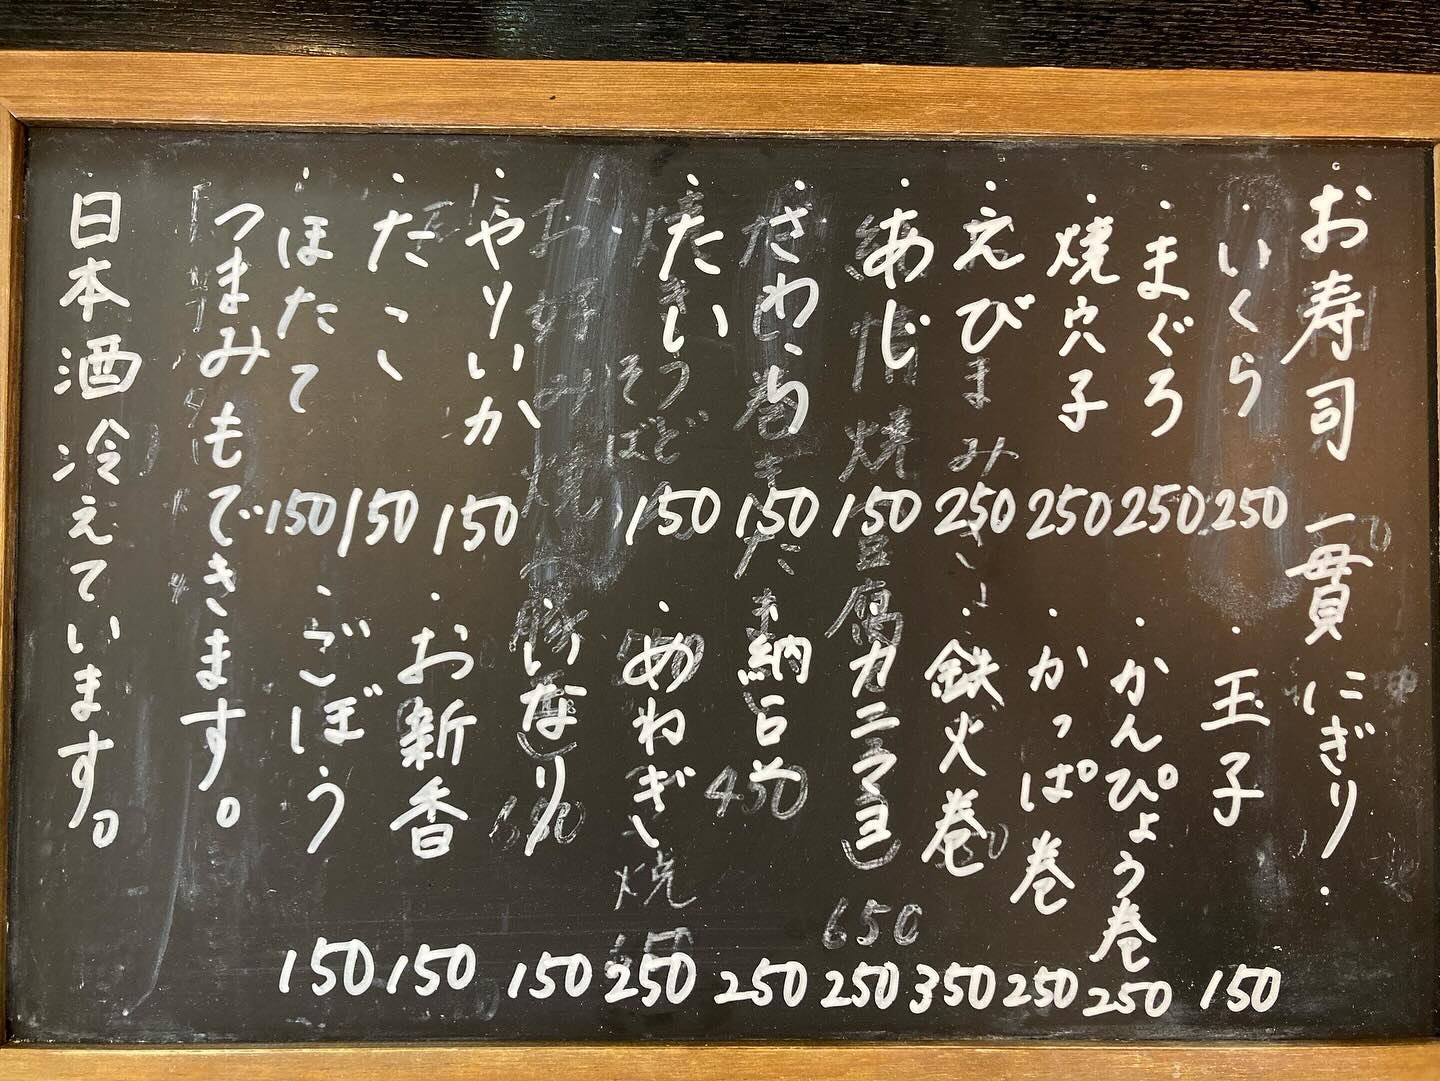 お寿司 一貫 にぎり.
・いくら 250
・まぐろ 250
・焼穴子 250
・えび 250
・あじ 150
・さわら 150
・たい 150
・やりいか 150
・たこ 150
・ほたて 150
・玉子 150
・かんぴょう巻 250
・かっぱ巻 250
・鉄火巻 350
カニマヨ 250
・納豆 250
・めねぎ 250
・いなり 150
・お新香 150
・ごぼう 150
つまみもできます。
・日本酒冷えています。